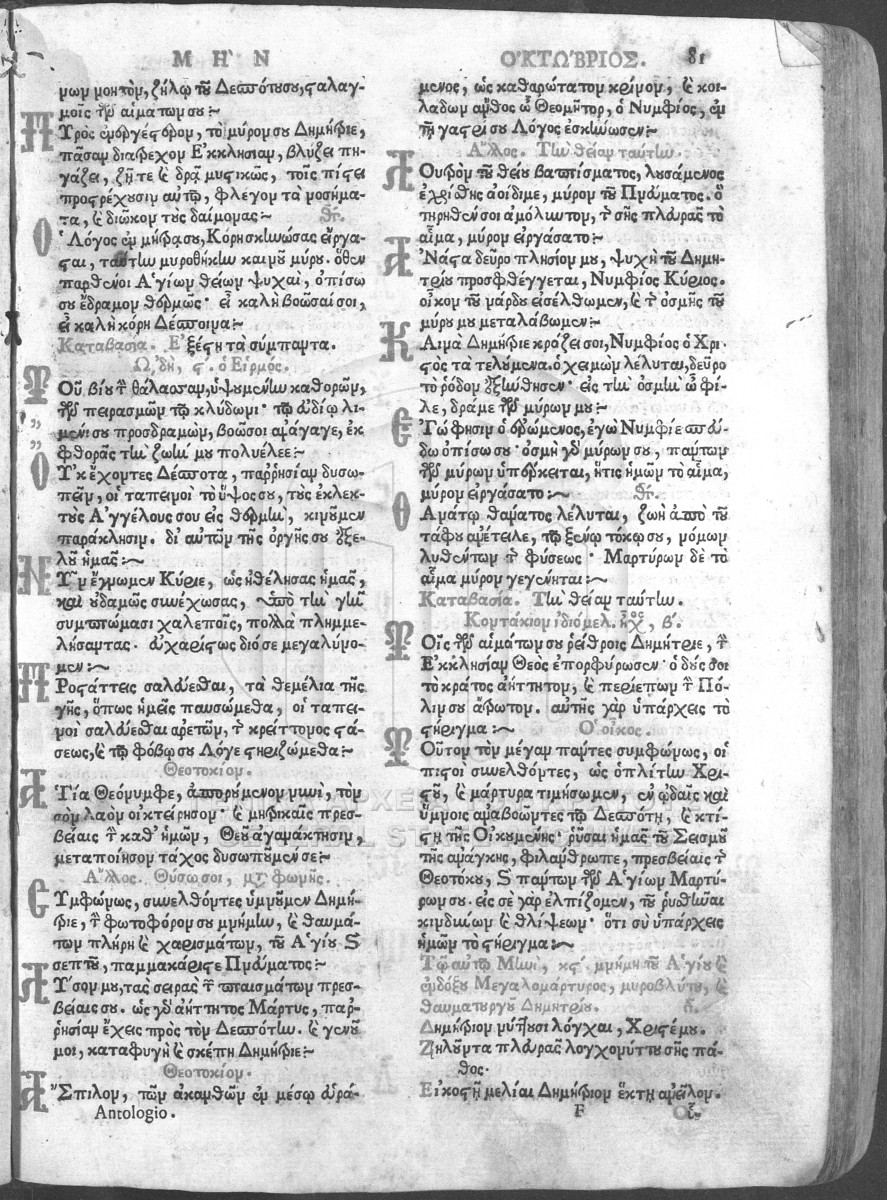 ΜΗῈΝ ΟΚΤΩΒΡΙΟΣ. 81
μων μου τὸν, ζήλῳ τοῦ Δεσπότου σου, σταλαγ-
μοῖς τῶν αἱμάτων σου:~
Πυρὸς ἐνεργέστερον, τὸ μύρον σου Δημήτριε,
πᾶσαν διατρέχον Ἐκκλησίαν, βλύζει πη-
γάζει, ζῇ τε καὶ δρᾷ μυστικῶς, τοῖς πίστει
προστρέχουσιν αὐτῷ, φλέγον τὰ νοσήμα-
τα, καὶ διῶκον τοὺς δαίμονας:~ Θτ.
Ὁ Λόγος ἐν μήτρᾳ σου, Κόρη σκηνώσας εἴργα-
σται, ταύτην μυροθήκην καινοῦ μύρου. ὅθεν
παρθένοι Ἁγίων θεῖον ψυχαὶ, ὀπίσω
σου ἔδραμον θερμῶς· εἶ καλὴ βοῶσαί σοι,
εἶ καλὴ κόρη Δέσποινα:~
Καταβασία. Ἐξέστη τὰ σύμπαντα.
Ὠδὴ, ς. ὁ Εἱρμός.
Τοῦ βίου τὴν θάλασσαν, ὑψουμένην καθορῶν,
τῶν πειρασμῶν τῷ κλύδωνι· τῷ εὐδίῳ λι-
μένι σου προσδραμὼν, βοῶσοι ἀνάγαγε, ἐκ
φθορᾶς τὴν ζωήν μου πολυέλεε:~
Οὐκ ἔχοντες Δέσποτα, παῤῥησίαν δυσω-
πεῖν, οἱ ταπεινοὶ τὸ ὕψος σου, τοὺς ἐκλεκ-
τοὺς Ἀγγέλους σου εἰς θερμὴν, κινοῦμεν
παράκλησιν. δι αὐτῶν τῆς ὀργῆς σου ἐξε-
λοῦ ἡμᾶς:~
Νῦν ἔγνωμεν Κύριε, ὡς ἠθέλησας ἡμᾶς,
καὶ οὐδαμῶς συνέχωσας, ὑπὸ τὴν γῆν
συμπτώμασι χαλεποῖς, πολλὰ πλημμε-
λήσαντας. εὐχαρίστως διό σε μεγαλύνο-
μεν:~
Προστάττεις σαλεύεσθαι, τὰ θεμέλια τῆς
γῆς, ὅπως ἡμεῖς παυσώμεθα, οἱ ταπει-
νοὶ σαλεύεσθαι ἀρετῶν, τῆς κρείττονος στά-
σεως, καὶ τῷ φόβῳ σου Λόγε στηριζώμεθα:~
Θεοτοκίον.
Ἁγία Θεόνυμφε, ἀπορούμενον νυνὶ, τὸν
σὸν λαὸν οἰκτείρησον· καὶ μητρικαῖς πρεσ-
βείαις τὴν καθ' ἡμῶν, Θεοῦ ἀγανάκτησιν,
μεταποίησον τάχος δυσωποῦμέν σε:~
Ἄλλος. Θύσω σοι, μετὰ φωνῆς.
Συμφώνως, συνελθόντες ὑμνοῦμεν Δημή-
τριε, τὴν φωτοφόρον σου μνήμην, καὶ θαυμά-
των πλήρη καὶ χαρισμάτων, τοῦ Ἁγίου καὶ
σεπτοῦ, παμμακάριστε Πνεύματος:~
Λῦσόν μου, τὰς σειρὰς τῶν πταισμάτων πρεσ-
βείαις σου. ὡς γὰρ ἀήττητος Μάρτυς, παῤ-
ῥησίαν ἔχεις πρὸς τὸν Δεσπότην. καὶ γενοῦ
μοι, καταφυγὴ καὶ σκέπη Δημήτριε:~
Θεοτοκίον.
Ἄσπιλον, τῶν ἀκανθῶν ἐν μέσῳ εὑρά-
Antologio.
μενος, ὡς καθαρώτατον κρίνον, καὶ κοι-
λάδων ἄνθος ὦ Θεομῆτορ, ὁ Νυμφίος, ἐν
τῇ γαστρί σου Λόγος ἐσκήνωσεν:~
Ἄλλος. Τὴν θείαν ταύτην.
Λουτρὸν τοῦ θείου βαπτίσματος, λουσάμενος
ἐχρίσθης ἀοίδιμε, μύρον τοῦ Πνεύματος. ὃ
τηρηθέν σοι ἀμόλυντον, τῆς σῆς πλευρᾶς τὸ
αἷμα, μύρον εἰργάσατο:~
Ἀνάστα δεῦρο πλησίον μου, ψυχὴ τοῦ Δημη-
τρίου προσφθέγγεται, Νυμφίος Κύριος.
οἶκον τοῦ νάρδου εἰσέλθωμεν, καὶ τῆς ὀσμῆς τοῦ
μύρου μου μεταλάβωμεν:~
Καινὰ Δημήτριε κράζει σοι, Νυμφίος ὁ Χρι-
στὸς τὰ τελούμενα. ὁ χειμὼν λέλυται, δεῦρο
τὸ ῥόδον ἐξήνθησεν· εἰς τὴν ὀσμὴν ὦ φί-
λε, δράμε τῶν μύρων μου:~
Ἐγώ φησιν ὁ ἐρώμενος, ἐγὼ Νυμφίε σπεύ-
δω ὀπίσω σου· ὀσμὴ γὰρ μύρων σου, πάντων
τῶν μύρων ὑπέρκειται, ἥτις ἡμῶν τὸ αἷμα,
μύρον εἰργάσατο:~ Θτ.
Θανάτῳ θάνατος λέλυται, ζωὴ ἀπὸ τοῦ
τάφου ἀνέτειλε, τῷ ξένῳ τόκῳ σου, νόμων
λυθέντων τῆς φύσεως· Μαρτύρων δὲ τὸ
αἷμα μύρον γεγένηται:~
Καταβασία. Τὴν θείαν ταύτην.
Κοντάκιον ἰδιόμελ. ἦχος, β'.
Τοῖς τῶν αἱμάτων σου ῥείθροις Δημήτριε, τὴν
Ἐκκλησίαν Θεὸς ἐπορφύρωσεν· ὁ δούς σοι
τὸ κράτος ἀήττητον, καὶ περιέπων τὴν Πό-
λιν σου ἄτρωτον. αὐτῆς γὰρ ὑπάρχεις τὸ
στήριγμα:~ Ὁ οἶκος.
Τοῦτον τὸν μέγαν πάντες συμφώνως, οἱ
πιστοὶ συνελθόντες, ὡς ὁπλίτην Χρι-
στοῦ, καὶ μάρτυρα τιμήσωμεν, ἐν ᾠδαῖς καὶ
ὕμνοις ἀναβοῶντες τῷ Δεσπότῃ, καὶ κτί-
στῃ τῆς Οἰκουμένης· ῥῦσαι ἡμᾶς τοῦ Σεισμοῦ
τῆς ἀνάγκης, φιλάνθρωπε, πρεσβείαις τῆς
Θεοτόκου, καὶ πάντων τῶν Ἁγίων Μαρτύ-
ρων σου. εἰς σὲ γὰρ ἐλπίζομεν, τοῦ ῥυσθῆναι
κινδύνων καὶ θλίψεων· ὅτι σὺ ὑπάρχεις
ἡμῶν τὸ στήριγμα:~
Τῷ αὐτῷ Μηνὶ, κς. μνήμη τοῦ Ἁγίου καὶ
ἐνδόξου Μεγαλομάρτυρος, μυροβλύτου, καὶ
θαυματουργοῦ Δημητρίου.
Δημήτριον νύττουσι λόγχαι, Χριστέ μου.
Ζηλοῦντα πλευρᾶς λογχονύττου σῆς πά-
θος.
Εἰκοστῇ μελίαι Δημήτριον ἕκτῃ ἀνεῖλον.
F Οἷ-